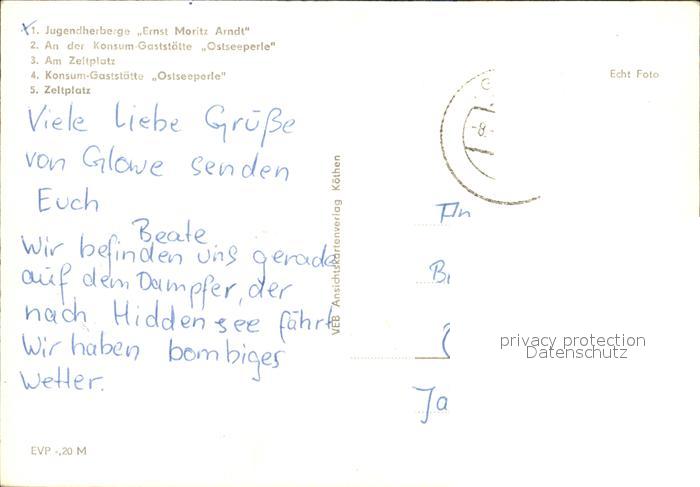 x1. Jugendherberge „Ernst Moritz Arndt"
2. An der Konsum-Gaststätte „Ostseeperle"
3. Am Zeltplatz
4. Konsum-Gaststätte „Ostseeperle"
5. Zeltplatz
Echt Foto
Viele liebe Grüße
von Glowe senden
Euch
Beate
Wir befinden uns gerade
auf dem Dampfer, der
nach Hiddensee fährt
Wir haben bombiges
Wetter.
VEB Ansichtskartenverlag Köthen
-8.-
An
Ja
privacy protection
Datenschutz
EVP -,20 M